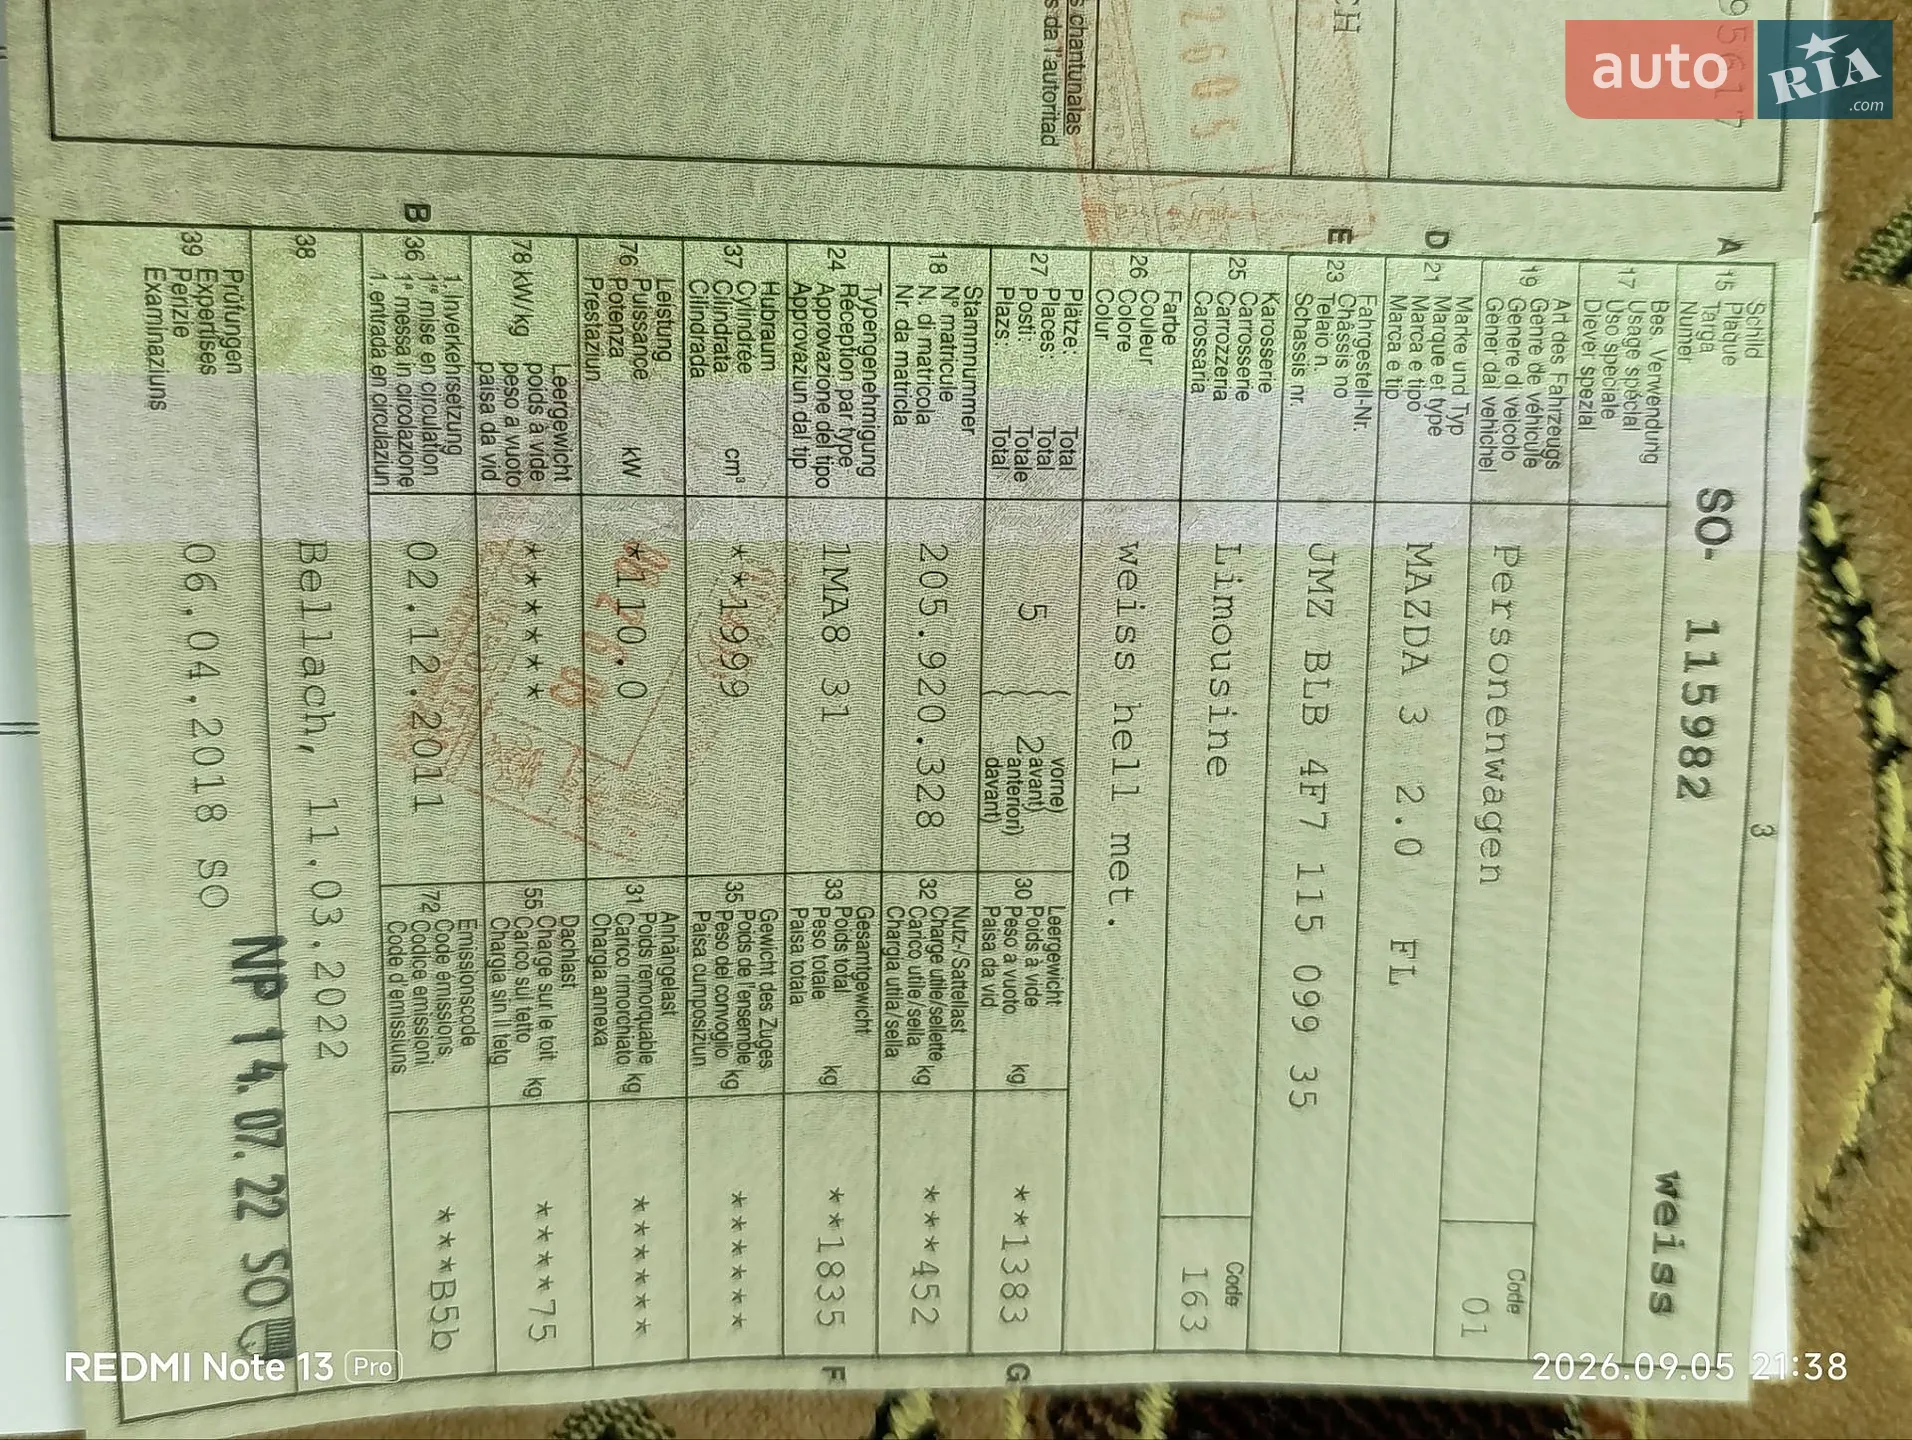 auto
RIA
.com
s chantunalas
s da l'autoritad
3
A 15 Schild
Plaque
Targa
Numer
SO- 115982
weiss
17 Bes. Verwendung
Usage spécial
Uso speciale
Diever spezial
19 Art des Fahrzeugs
Genre de véhicule
Genere di veicolo
Gener dal vehichel
Personenwagen
Code
01
D 21 Marke und Typ
Marque et type
Marca e tipo
Marca e tip
MAZDA 3 2.0 FL
E 23 Fahrgestell-Nr.
Châssis no
Telaio n.
Schassis nr.
JMZ BLB 4F7 115 099 35
25 Karosserie
Carrosserie
Carrozzeria
Carossaria
Limousine
Code
163
26 Farbe
Couleur
Colore
Colur
weiss hell met.
27 Plätze: Total
Places: Total
Posti: Totale
Pazs: Total
5
vorne)
2 avant)
anteriori)
davant)
30 Leergewicht
Poids à vide
Peso a vuoto
Paisa da vid
kg
**1383
G
18 Stammnummer
N° matricule
N. di matricola
Nr. da matricla
205.920.328
32 Nutz-/Sattellast
Charge utile/sellette
Carico utile/sella
Chargia utila/sella
kg
***452
24 Typengenehmigung
Réception par type
Approvazione del tipo
Approvaziun dal tip
1MA8 31
33 Gesamtgewicht
Poids total
Peso totale
Paisa totala
kg
**1835
F
37 Hubraum
Cylindrée
Cilindrata
Cilindrada
cm³
**1999
35 Gewicht des Zuges
Poids de l'ensemble
Peso del convoglio
Paisa cumposiziun
kg
******
76 Leistung
Puissance
Potenza
Prestaziun
kW
*110.0
31 Anhängelast
Poids remorquable
Carico rimorchiato
Chargia annexa
kg
******
78 kW/kg
Leergewicht
poids à vide
peso a vuoto
paisa da vid
******
55 Dachlast
Charge sur le toit
Carico sul tetto
Chargia sin il tetg
kg
****75
B 36 1. Inverkehrsetzung
1re mise en circulation
1a messa in circolazione
1. entrada en circulaziun
02.12.2011
72 Emissionscode
Code émissions
Codice emissioni
Code d'emissiuns
***B5b
38
Bellach, 11.03.2022
39 Prüfungen
Expertises
Perizie
Examinaziuns
06.04.2018 SO
NP 14. 07. 22 SO
REDMI Note 13 Pro
2026.09.05 21:38